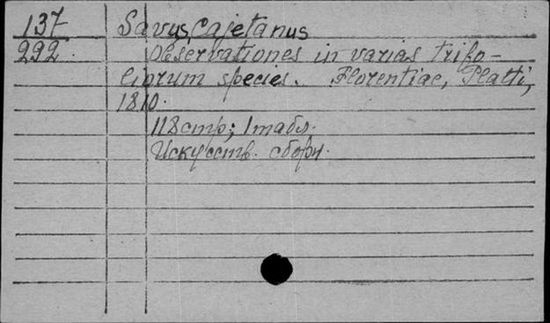 137 Savus, Cajetanus
292 Observationes in varias trifo-
liorum species. Florentiae, Piatti,
1810.
118стр; 1 табл.
Искусств. сборн.